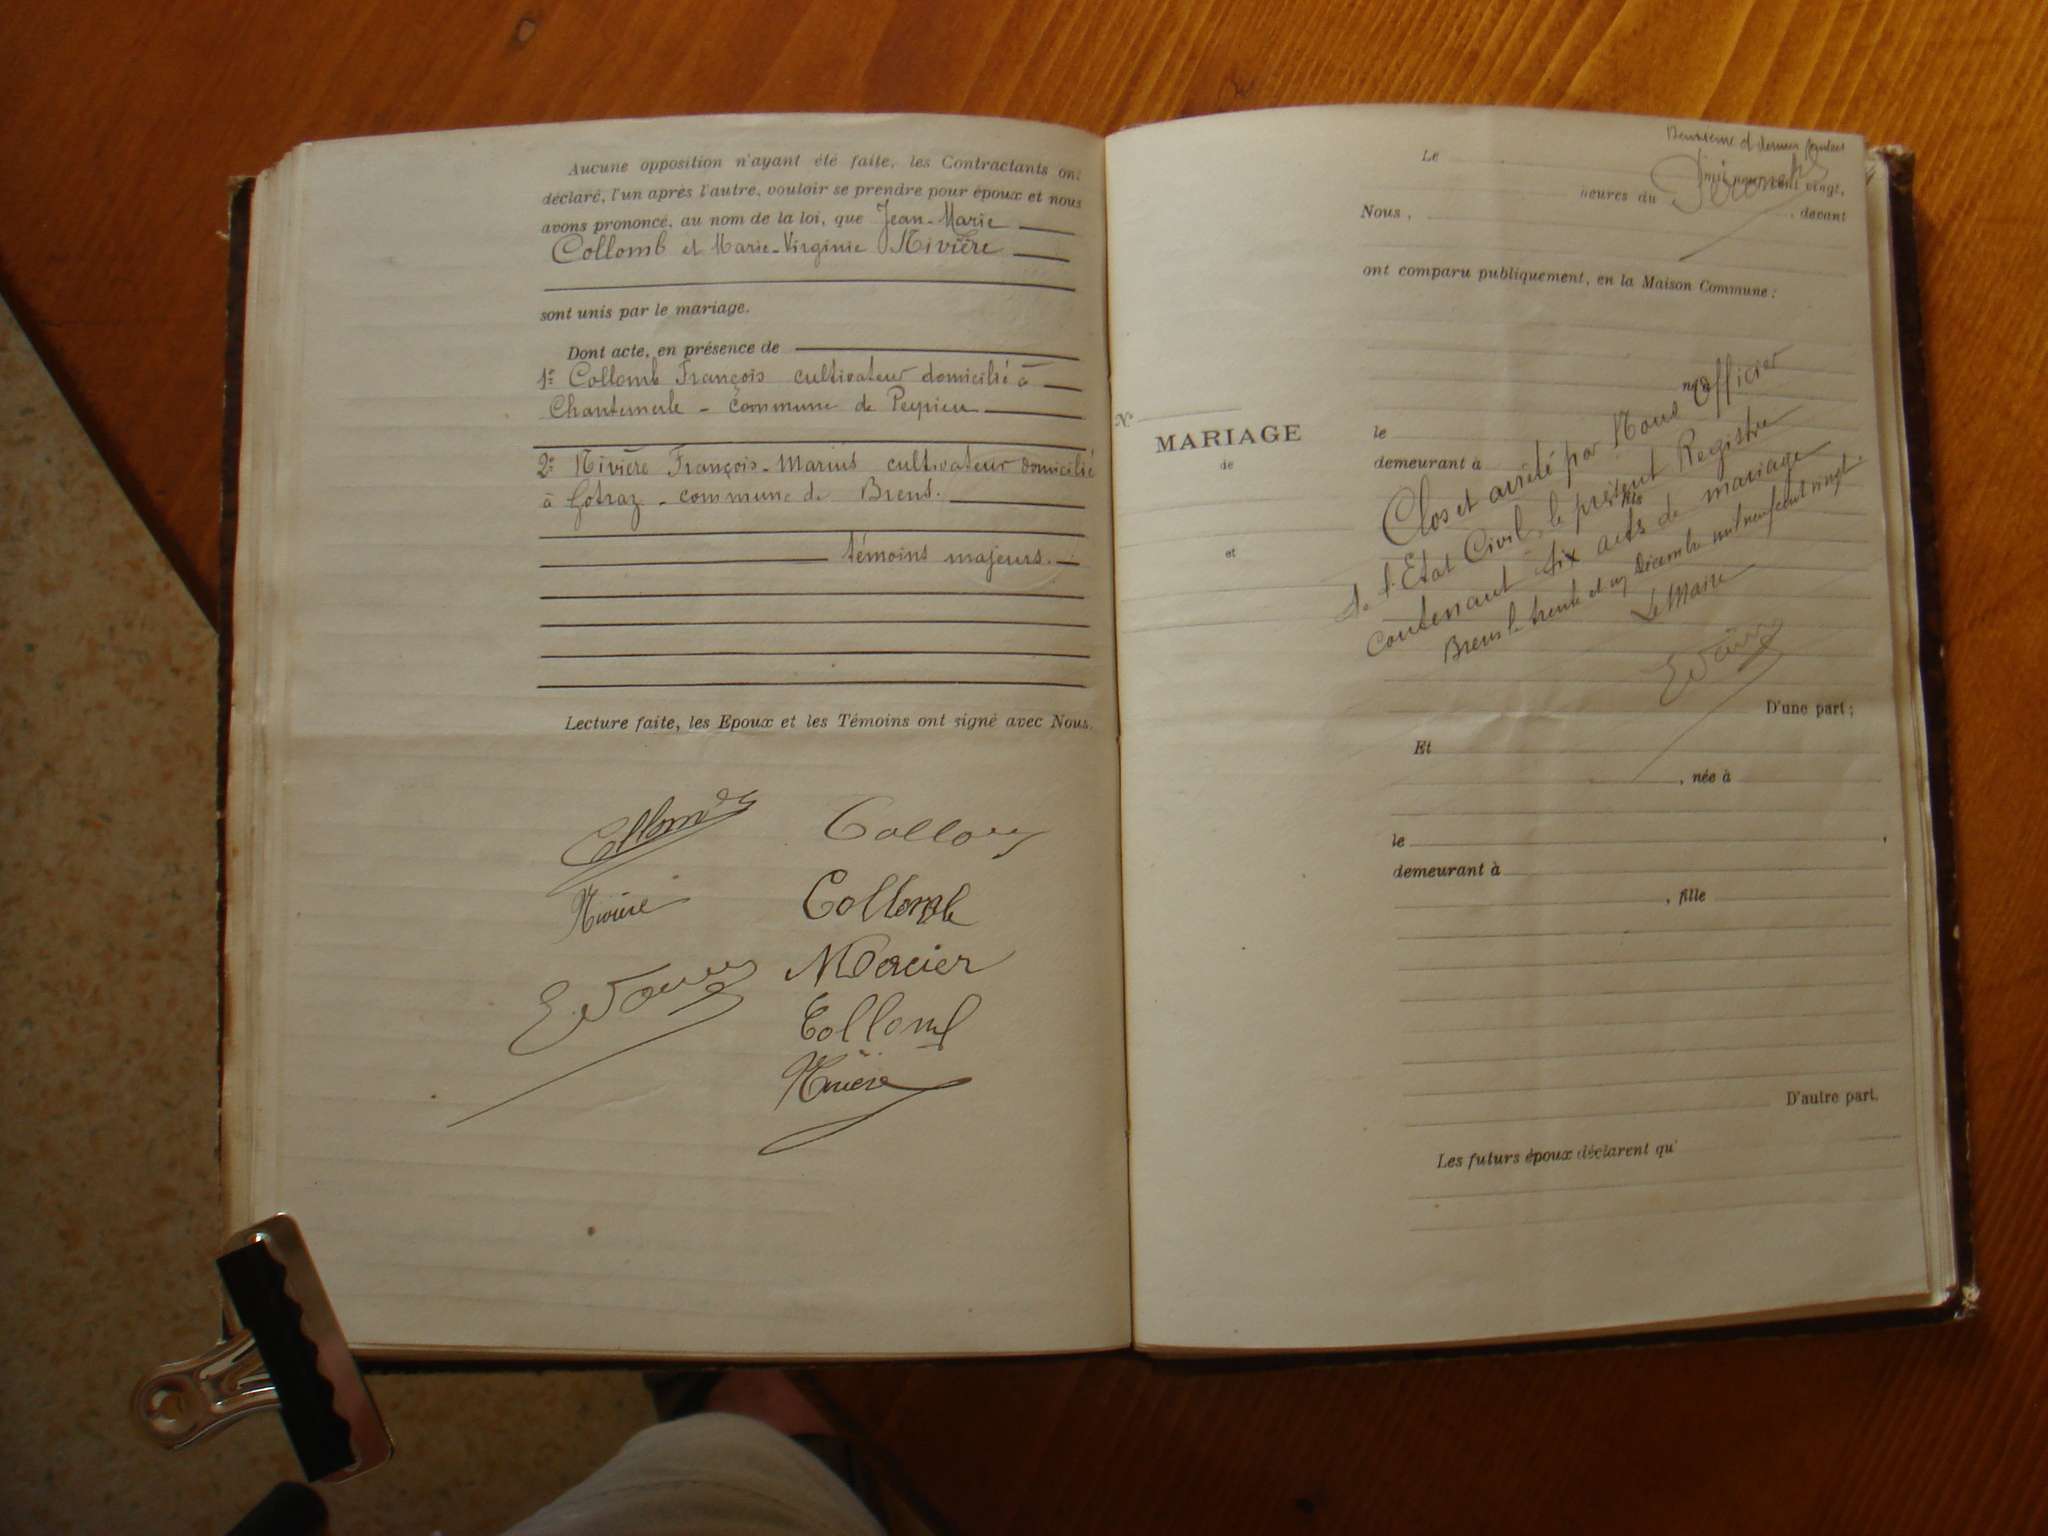 Aucune opposition n'ayant été faite, les Contractants ont
déclaré, l'un après l'autre, vouloir se prendre pour époux et nous
avons prononcé, au nom de la loi, que Jean-Marie
Collomb et Marie-Virginie Rivière
sont unis par le mariage.
Dont acte, en présence de
1e Collomb François cultivateur domicilié à
Chantemerle - commune de Peyrieu
2e Rivière François-Marius cultivateur domicilié
à Gotraz - commune de Brens.
témoins majeurs.
Lecture faite, les Epoux et les Témoins ont signé avec Nous.
Collomb
Collomb
Rivière
Collomb
Mercier
Collomb
Rivière
Deuxième et dernier
Le
mil neuf cent vingt,
heures du
Nous, , devant
ont comparu publiquement, en la Maison Commune :
né à
N°
MARIAGE
de
et
le
demeurant à
Clos et arrêté par Nous Officier
de l'Etat Civil, le présent Registre
fils
contenant six actes de mariage
Brens le trente et un Décembre mil neuf cent vingt.
Le Maire
D'une part ;
Et
, née à
le ,
demeurant à
, fille
D'autre part.
Les futurs époux déclarent qu'